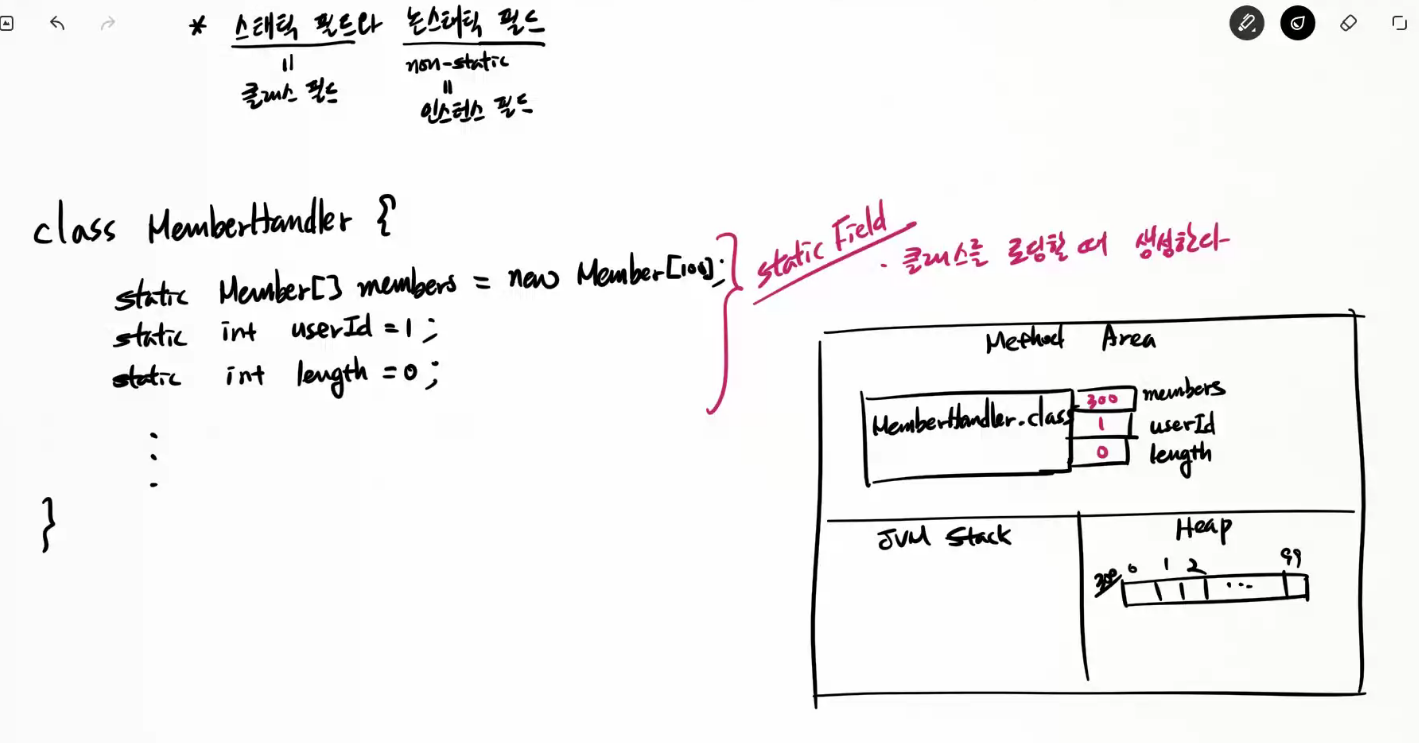 * 스태틱 필드와 논스태틱 필드
= =
클래스 필드
non-static
=
인스턴스 필드
class MemberHandler {
static Member[] members = new Member[100];
static int userId = 1;
static int length = 0;
}
static Field
· 클래스를 로딩할 때 생성한다
Method Area
MemberHandler.class
300 members
1 userId
0 length
JVM Stack
Heap
300 0 1 2 ... 99